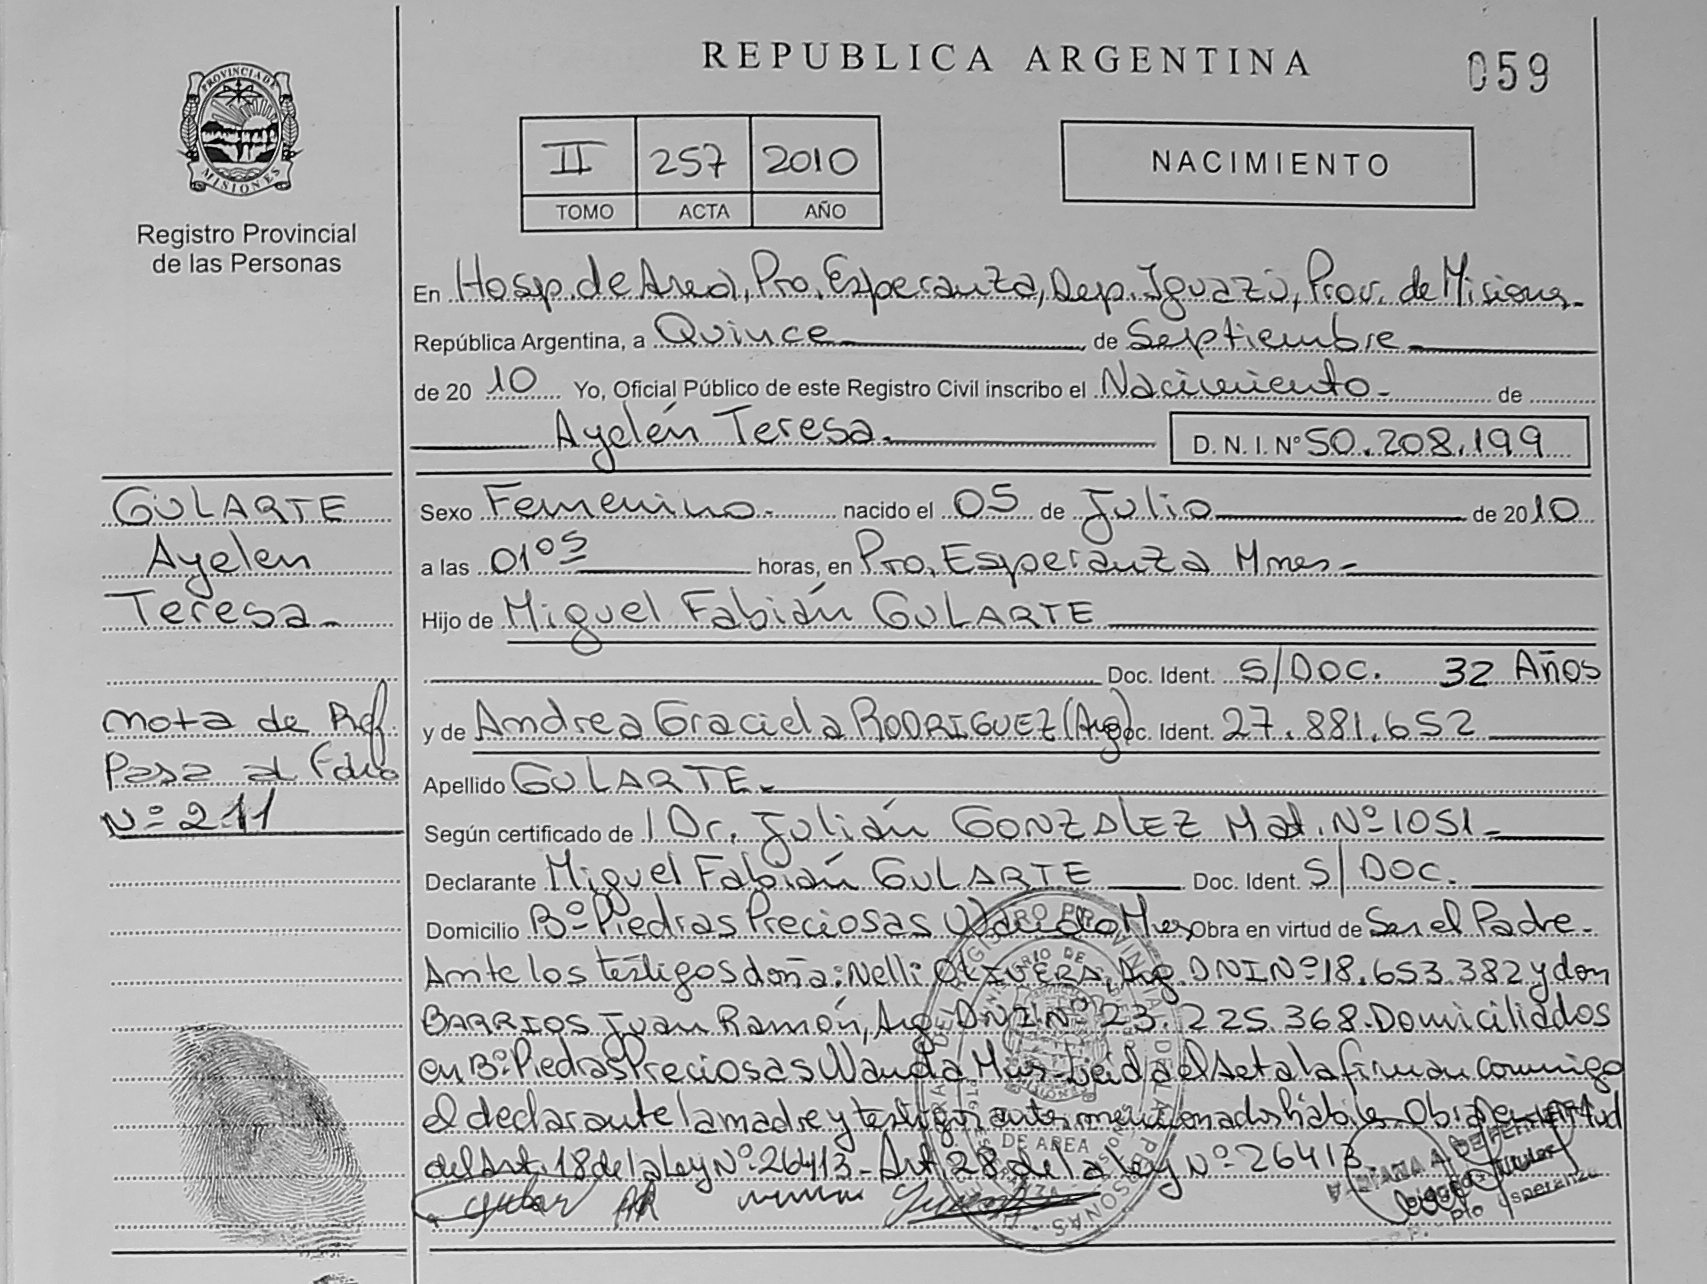 REPUBLICA ARGENTINA
059
PROVINCIA DE
MISIONES
Registro Provincial
de las Personas
II 257 2010
TOMO ACTA AÑO
NACIMIENTO
En Hosp. de Area, Pto. Esperanza, Dep. Iguazú, Prov. de Misiones.
República Argentina, a Quince de Septiembre
de 2010 Yo, Oficial Público de este Registro Civil inscribo el Nacimiento de
Ayelén Teresa D.N.I. Nº 50.208.199
GULARTE
Ayelen
Teresa
Nota de Ref.
Pasa al Folio
Nº 211
Sexo Femenino nacido el 05 de Julio de 2010
a las 01º⁵ horas, en Pto. Esperanza Mnes
Hijo de Miguel Fabián GULARTE
Doc. Ident. S/DOC. 32 Años
y de Andrea Graciela RODRIGUEZ (Arg) Doc. Ident. 27.881.652
Apellido GULARTE
Según certificado de l Dr. Julián GONZALEZ Mat. Nº 1051
Declarante Miguel Fabián GULARTE Doc. Ident. S/DOC.
Domicilio Bº Piedras Preciosas Wanda Mnes Obra en virtud de Ser el Padre
Ante los testigos doña: Nelli OLIVERA, Arg. DNI Nº 18.653.382 y don
BARRIOS Juan Ramón, Arg. DNI. Nº 23.225.368. Domiciliados
en Bº Piedras Preciosas Wanda Mns- Leida el Acta la firman conmigo
el declarante la madre y testigos antes mencionados hábiles Obi
del Art. 18 de la Ley Nº 26413 - Art. 28 de la Ley Nº 26413
DE AREA